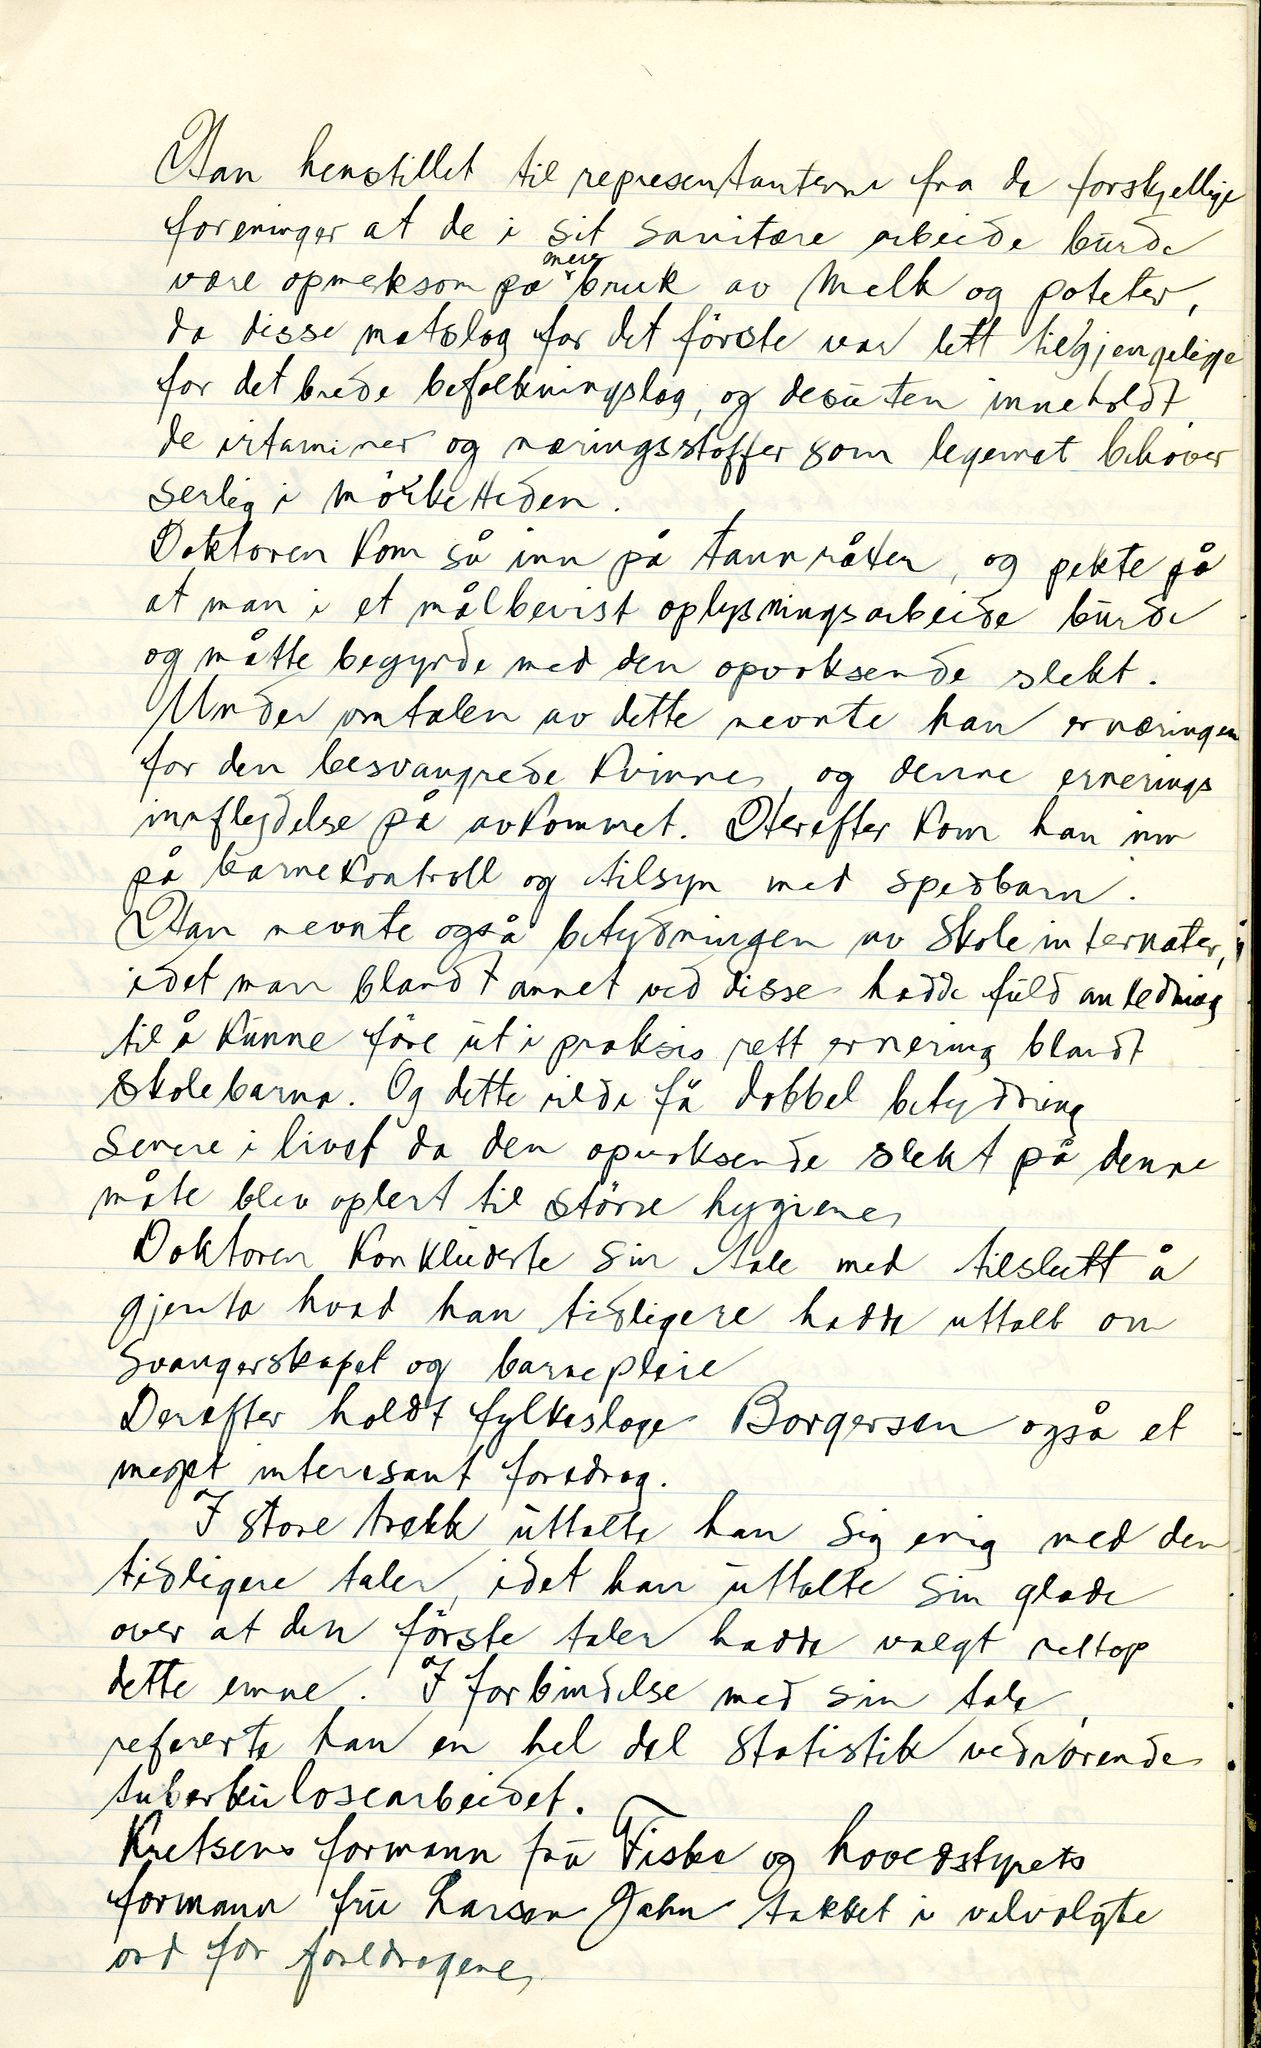 Han henstillet til representanterne fra de forskjellige
foreninger at de i sit sanitære arbeide burde
være opmerksom på mere bruk av melk og poteter,
da disse matslag for det første var lett tilgjengelige
for det brede befolkningslag, og desuten inneholdt
de vitaminer og næringsstoffer som legemet behøver
serlig i mörketiden.
Doktoren kom så inn på tannråten, og pekte på
at man i et målbevist oplysningsarbeide burde
og måtte begynde med den opvoksende slekt.
Under omtalen av dette nevnte han ernæringen
for den besvangrede kvinne, og denne ernerings
innflydelse på avkommet. Herefter kom han inn
på barnekontroll og tilsyn med spedbarn.
Han nevnte også betydningen av skoleinternater,
idet man blandt annet ved disse hadde fuld anledning
til å kunne före ut i praksis rett ernering blandt
skolebarna. Og dette vilde få dobbel betydning
senere i livet da den opvoksende slekt på denne
måte blev oplert til större hygiene,
Doktoren konkluderte sin tale med tilslutt å
gjenta hvad han tidligere hadde uttalt om
svangerskapet og barnepleie
Derefter holdt fylkeslege Borgersen også et
meget interesant foredrag.
I store trekk uttalte han sig enig med den
tidligere taler, idet han uttalte sin glede
over at den förste taler hadde valgt nettop
dette emne. I forbindelse med sin tale,
refererte han en hel del statistik vedrørende
tuberkulosearbeidet.
Kretsens formann fru Fiska og hovedstyrets
formann fru Larsen Jahn takket i velvalgte
ord for foredragene,